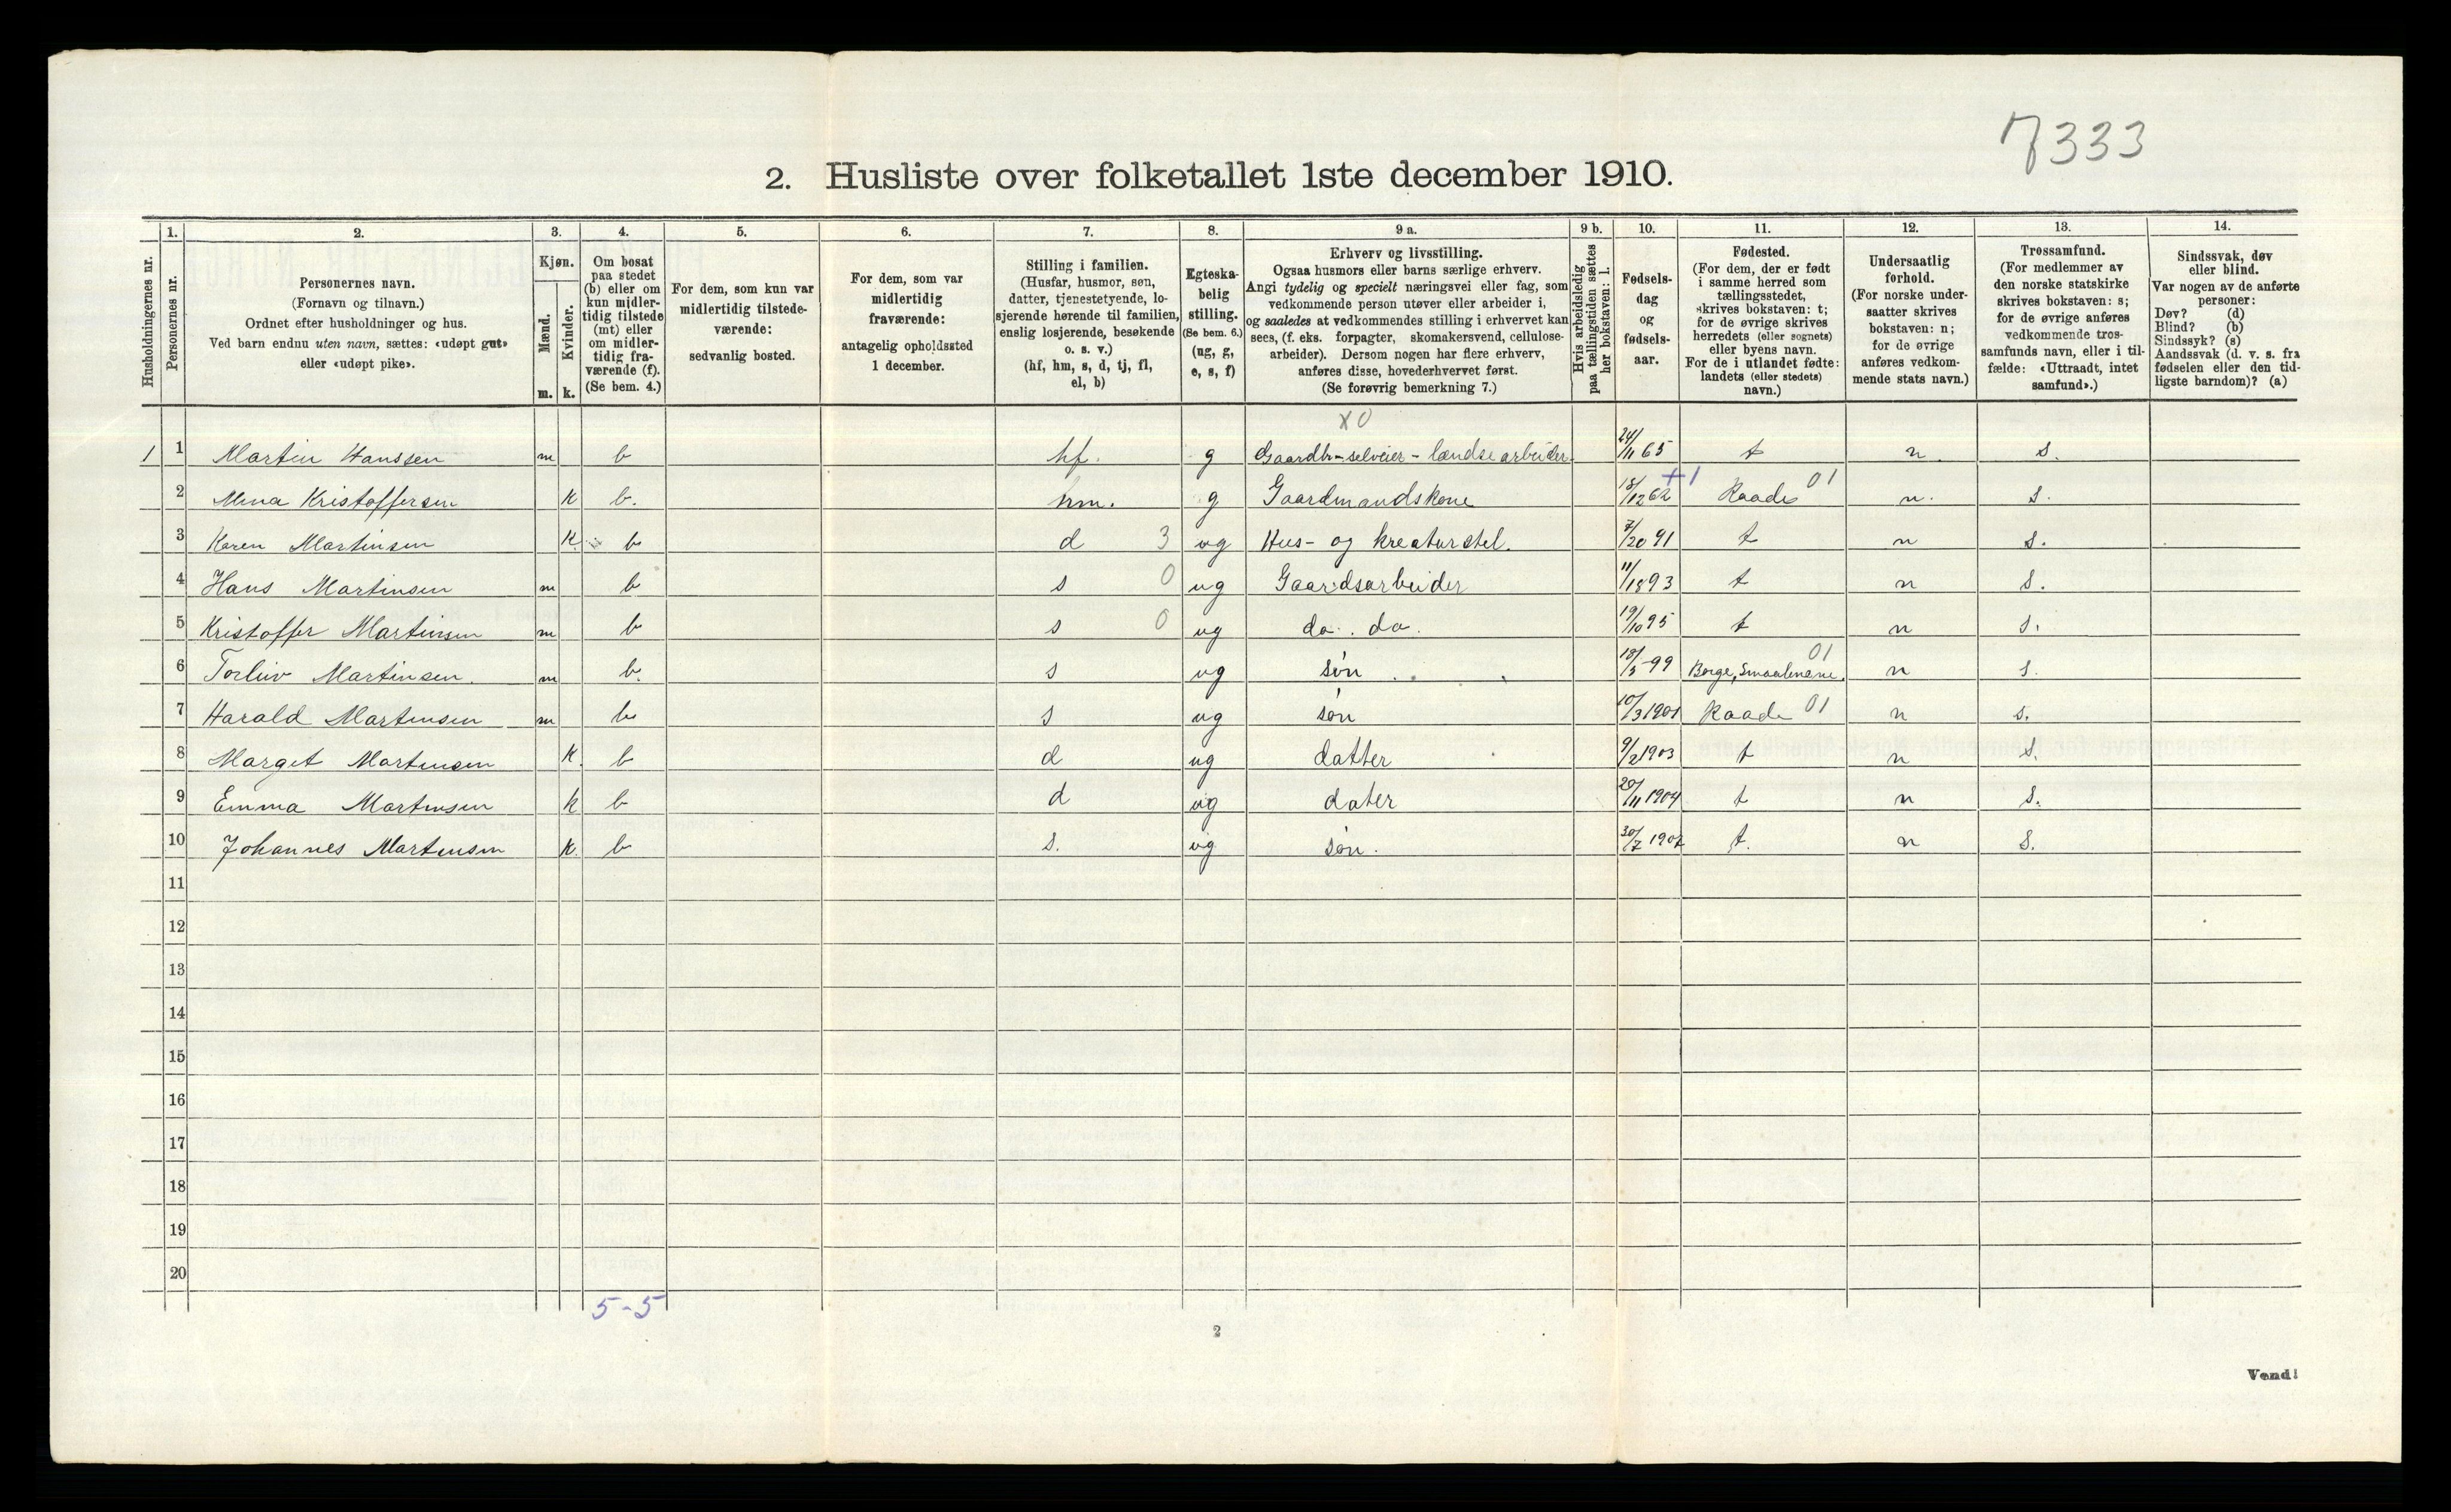 7333
2. Husliste over folketallet 1ste december 1910.
Husholdningernes nr.
1.
Personernes nr.
2.
Personernes navn.
(Fornavn og tilnavn.)
Ordnet efter husholdninger og hus.
Ved barn endnu uten navn, sættes: «udøpt gut»
eller «udøpt pike».
3.
Kjøn.
Mænd.
Kvinder.
m. k.
4.
Om bosat
paa stedet
(b) eller om
kun midler-
tidig tilstede
(mt) eller
om midler-
tidig fra-
værende (f).
(Se bem. 4.)
5.
For dem, som kun var
midlertidig tilstede-
værende:
sedvanlig bosted.
6.
For dem, som var
midlertidig
fraværende:
antagelig opholdssted
1 december.
7.
Stilling i familien.
(Husfar, husmor, søn,
datter, tjenestetyende, lo-
sjerende hørende til familien,
enslig losjerende, besøkende
o. s. v.)
(hf, hm, s, d, tj, fl,
el, b)
8.
Egteska-
belig
stilling.
(Se bem. 6.)
(ug, g,
e, s, f)
9 a.
Erhverv og livsstilling.
Ogsaa husmors eller barns særlige erhverv.
Angi tydelig og specielt næringsvei eller fag, som
vedkommende person utøver eller arbeider i,
og saaledes at vedkommendes stilling i erhvervet kan
sees, (f. eks. forpagter, skomakersvend, cellulose-
arbeider). Dersom nogen har flere erhverv,
anføres disse, hovederhvervet først.
(Se forøvrig bemerkning 7.)
9 b.
Hvis arbeidsledig
paa tællingstiden sættes
her bokstaven: l.
10.
Fødsels-
dag
og
fødsels-
aar.
11.
Fødested.
(For dem, der er født
i samme herred som
tællingsstedet,
skrives bokstaven: t;
for de øvrige skrives
herredets (eller sognets)
eller byens navn.
For de i utlandet fødte:
landets (eller stedets)
navn.)
12.
Undersaatlig
forhold.
(For norske under-
saatter skrives
bokstaven: n;
for de øvrige
anføres vedkom-
mende stats navn.)
13.
Trossamfund.
(For medlemmer av
den norske statskirke
skrives bokstaven: s;
for de øvrige anføres
vedkommende tros-
samfunds navn, eller i til-
fælde: «Uttraadt, intet
samfund».)
14.
Sindssvak, døv
eller blind.
Var nogen av de anførte
personer:
Døv? (d)
Blind? (b)
Sindssyk? (s)
Aandssvak (d. v. s. fra
fødselen eller den tid-
ligste barndom)? (a)
X0
1 1 Martin Hanssen m b hf. g Gaardbr-selveier - landsearbeider 24/11 65 t n. s.
2 Mina Kristoffersen k b. hm. g Gaardmandskone 18/12 62 +1 Raade 01 n. s.
3 Karen Martinsen k b d 3 ug Hus- og kreaturstel. 7/20 91 t n s.
4 Hans Martinsen m b s 0 ug Gaardsarbeider 11/18 93 t n s.
5 Kristoffer Martinsen m b s 0 ug do. do. 19/10 95 t n s.
6 Torleiv Martinsen. m b. s ug søn 18/5 -99 Borge, Smaalenene. 01 n s.
7 Harald Martinsen m b s ug søn 10/3 1901 Raade 01 n s.
8 Marget Martinsen k. b d ug datter 9/2 1903 t n s.
9 Emma Martinsen k b d ug dater 20/11 1904 t n s.
10 Johannes Martinsen k. b s. ug søn. 30/7 1907 t. n s.
11
12
13
14
15
16
17
18
19
20
5-5
2
Vend!